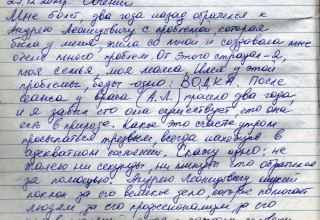 Мне 60 лет, два года назад обратился к
Андрею Леонидовичу с проблемой которая
была у меня, жила со мной и создавала мне
очень много проблем. От этого страдал – я,
моя семья, моя мама. Имя у этой
проблемы, беды одно: ВОДКА. После
сеанса у врача (А.Л.) прошло два года,
и я забыл что она существует, что она
есть в природе. Какое это счастье утром
просыпаться трезвым, всегда находится в
адекватном состоянии. Скажу одно: не
жалею ни секунды, ни минуты что обратился
за помощью. Андрею Леонидовичу низкий
поклон за его великое дело, которые помогает
людям за его профессионализм, за его